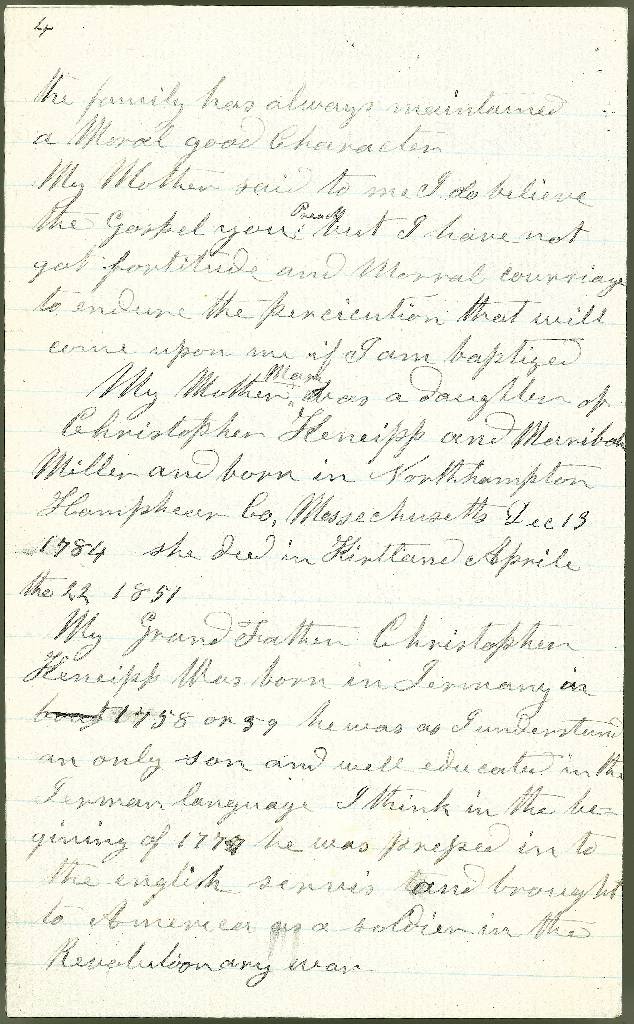 4
the family has always maintained
a Moral good Character
My Mother said to me I do believe
the Gospel you Preach but I have not
got fortitude and Morral couriage
to endure the percicution that will
come upon me if I am baptized
My Mother Mary was a daughter of
Christopher Kneipp and Maribah
Miller and born in Northhampton
Hamphear Co, Massechusetts Dec 13
1784 she died in Kirtland Aprile
the 22 1851
My Grand Father Christopher
Kneipp Was born in Germany in
1758 or 59 he was as I understand
an only son and well educated in the
German language I think in the be-
gining of 1777 he was presed in to
the english servis and brought
to America as a soldier in the
Revolutionary war